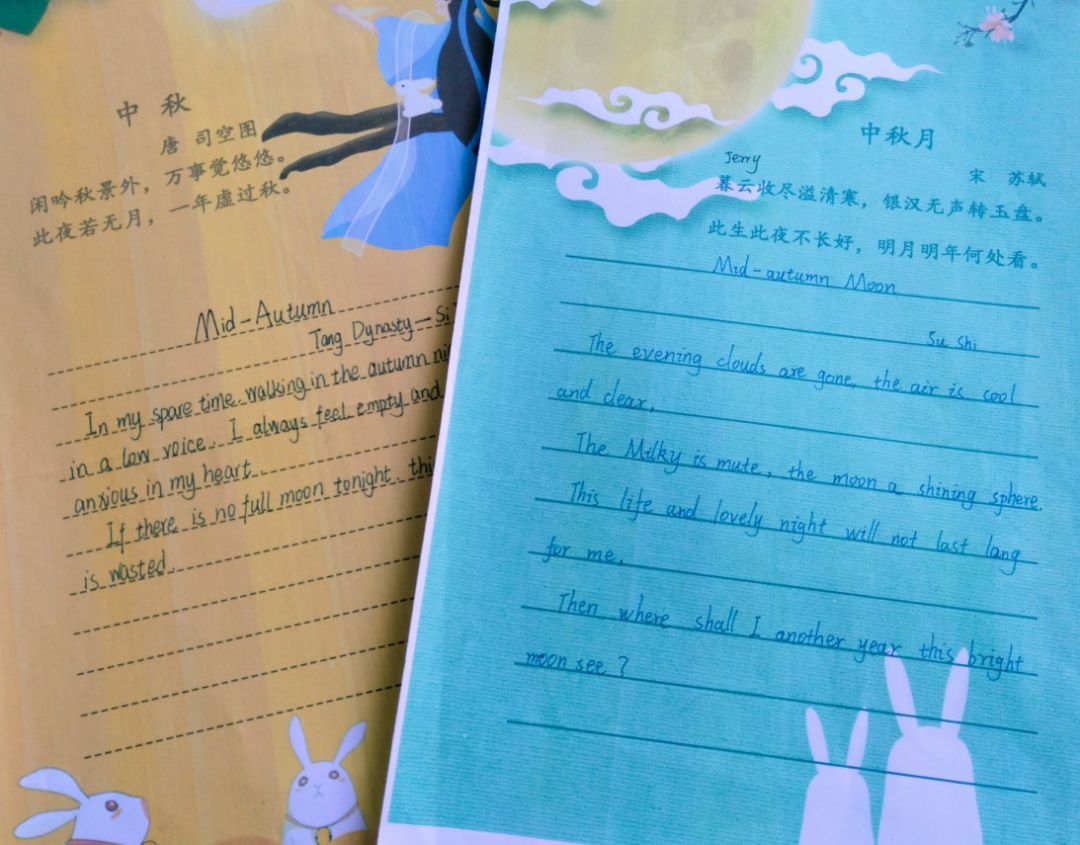 中 秋
唐 司空图
闲吟秋景外，万事觉悠悠。
此夜若无月，一年虚过秋。
Mid-Autumn
Tang Dynasty-Si
In my spare time. walking in the autumn
in a low voice. I always feel empty and
anxious in my heart.
If there is no full moon tonight. thi
is wasted.
中秋月
Jerry
宋 苏轼
暮云收尽溢清寒，银汉无声转玉盘。
此生此夜不长好，明月明年何处看。
Mid-autumn Moon
Su Shi
The evening clouds are gone, the air is cool
and clear,
The Milky is mute, the moon a shining sphere.
This life and lovely night will not last lang
for me,
Then where shall I another year this bright
moon see?